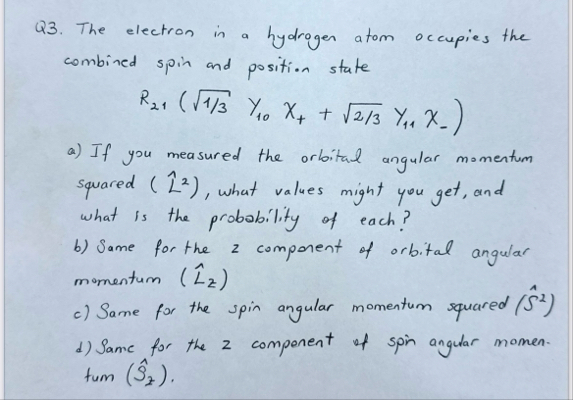 Q3. The electron in a hydrogen atom occupies the
combined spin and position state
R₂₁ (√1/3 Y₁₀ X₊ + √2/3 Y₁₁ X₋)
a) If you measured the orbital angular momentum
squared (L̂²), what values might you get, and
what is the probability of each?
b) Same for the z component of orbital angular
momentum (L̂z)
c) Same for the spin angular momentum squared (Ŝ²)
d) Same for the z component of spin angular momen-
tum (Ŝz).